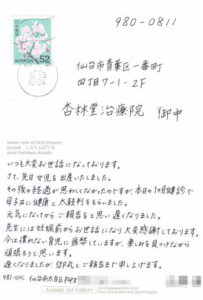 980-0811
仙台市青葉区一番町
四丁目7-1-2F
杏林堂治療院 御中
52
いつも大変お世話になっております。
さて、先日女児を出産いたしました。
その後の経過が思わしくなかったのですが、本日の1か月健診で
母子共に健康と太鼓判をもらいました。
元気になってからご報告をと思い遅くなりました。
先生には妊娠前からお世話になり大変感謝しております。
今は慣れない育児に疲弊していますが、楽しみを見つけながら
頑張ろうと思います。
遅くなりましたが、お礼とご報告まで申し上げます。
仙台市太白区